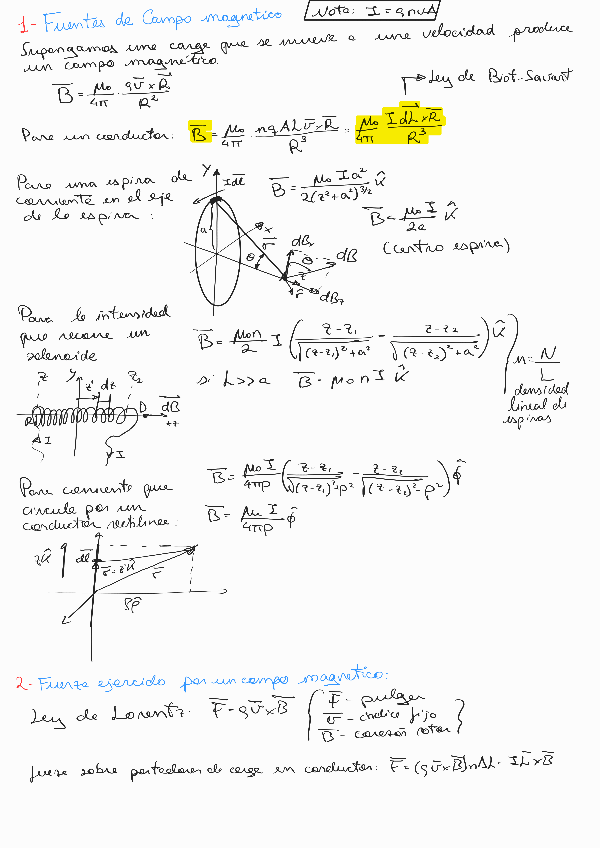 1- Fuentes de Campo magnetico
Nota: I = qnvA
Supongamos una carga que se mueve a una velocidad produce
un campo magnético.
B = μ₀/4π · qv×R/R²
Ley de Biot-Savart
Para un conductor: B = μ₀/4π · nqALv×R/R³ = μ₀/4π IdL×R/R³
Para una espira de
corriente en el eje
de la espira:
y Idl
a x r θ dBx dB z r̂ dBz
B = μ₀Ia²/2(z²+a²)^3/2 k̂
B = μ₀I/2a k̂
(centro espira)
Para la intensidad
que recorre un
solenoide
B = μ₀n/2 I (z-z₁/√(z-z₁)²+a² - z-z₂/√(z-z₂)²+a²) k̂
si L>>a B = μ₀nI k̂
n = N/L
densidad
lineal de
espiras
z y z' dz z₂
P dB
I I
Para corriente que
circula por un
conductor rectilineo.
B = μ₀I/4πρ (z-z₁/√(z-z₁)²+ρ² - z-z₂/√(z-z₂)²-ρ²) φ̂
B = μ₀I/4πρ φ̂
zk̂ dl r-z'k̂ r
ρρ̂
2- Fuerza ejercida por un campo magnetico:
Ley de Lorentz. F = qv×B
F - pulgar
v - indice fijo
B - corazón rotar
fuerza sobre portadores de carga en conductor: F = (qv×B)nAL · IL×B